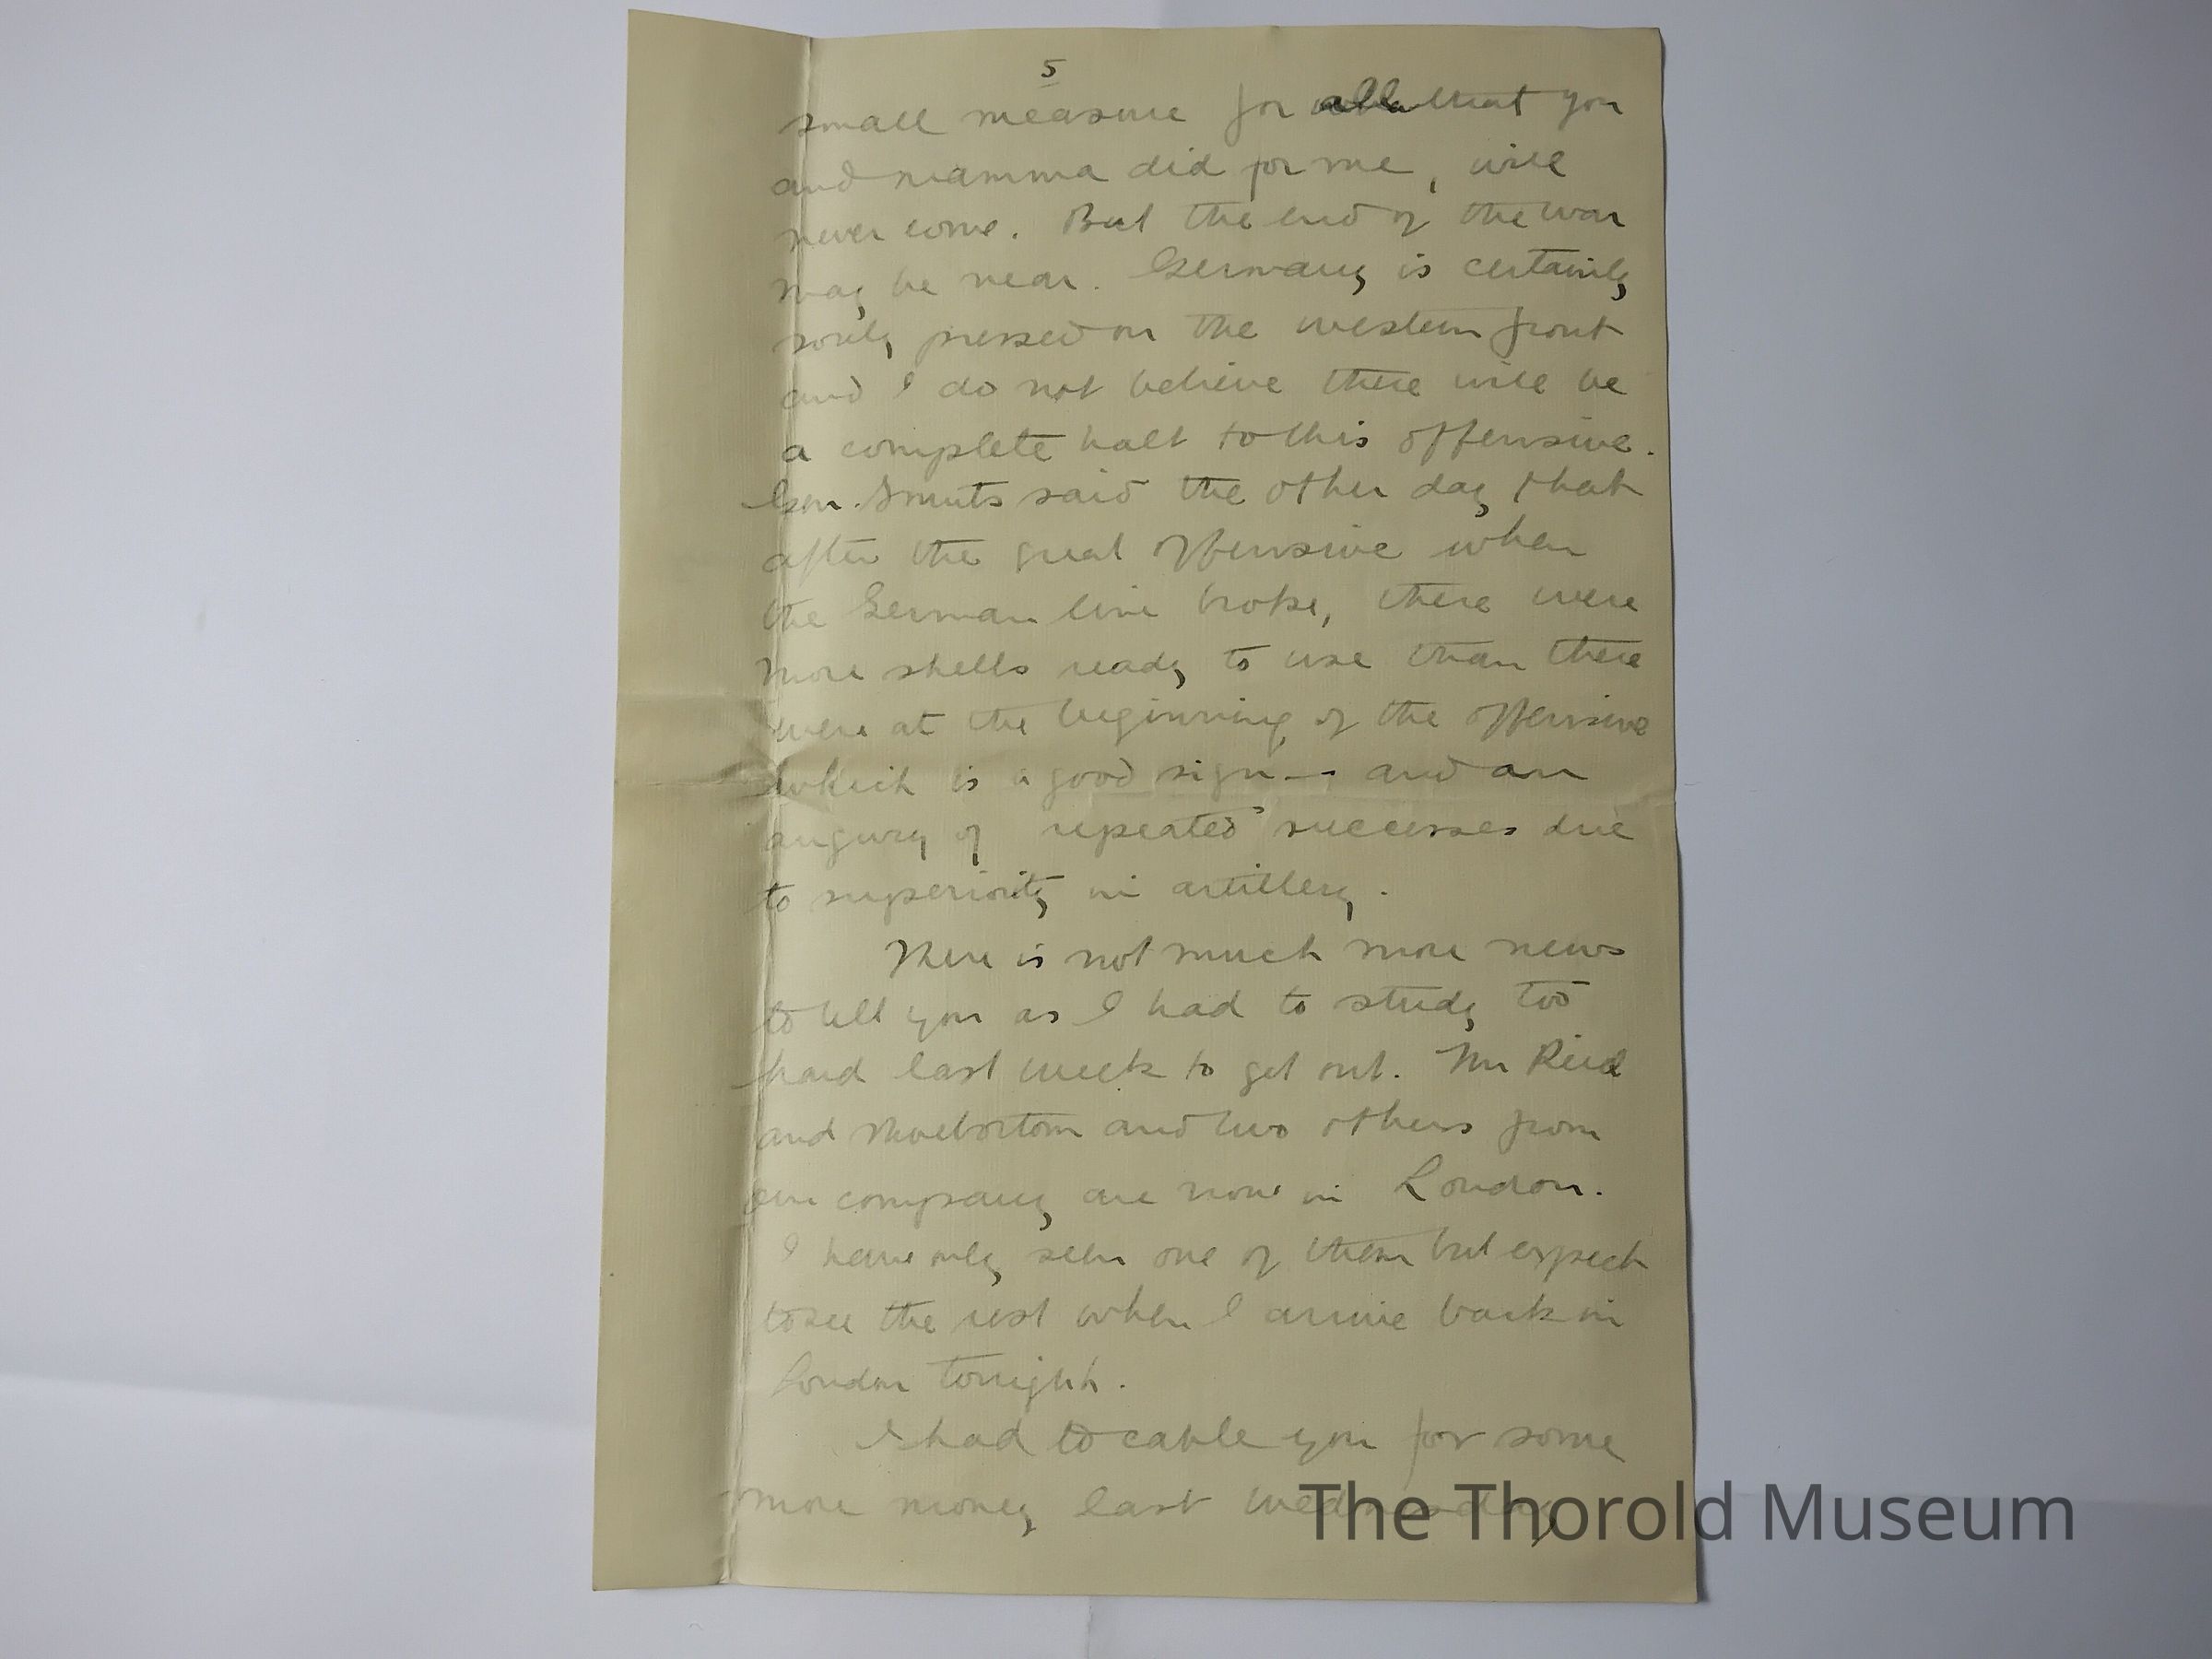 5
small measure for all that you
and mamma did for me, will
never come. But the end of the war
may be near. Germany is certainly
sorely pressed on the western front
and I do not believe there will be
a complete halt to this offensive.
Gen. Smuts said the other day that
after the great offensive when
the German line broke, there were
more shells ready to use than there
were at the beginning of the offensive
which is a good sign — and an
augury of repeated successes due
to superiority in artillery.
There is not much more news
to tell you as I had to study too
hard last week to get out. Mr Reid
and and two others from
our company are now in London.
I have only seen one of them but expect
to see the rest when I arrive back in
London tonight.
I had to cable you for some
more money last Wednesday
The Thorold Museum